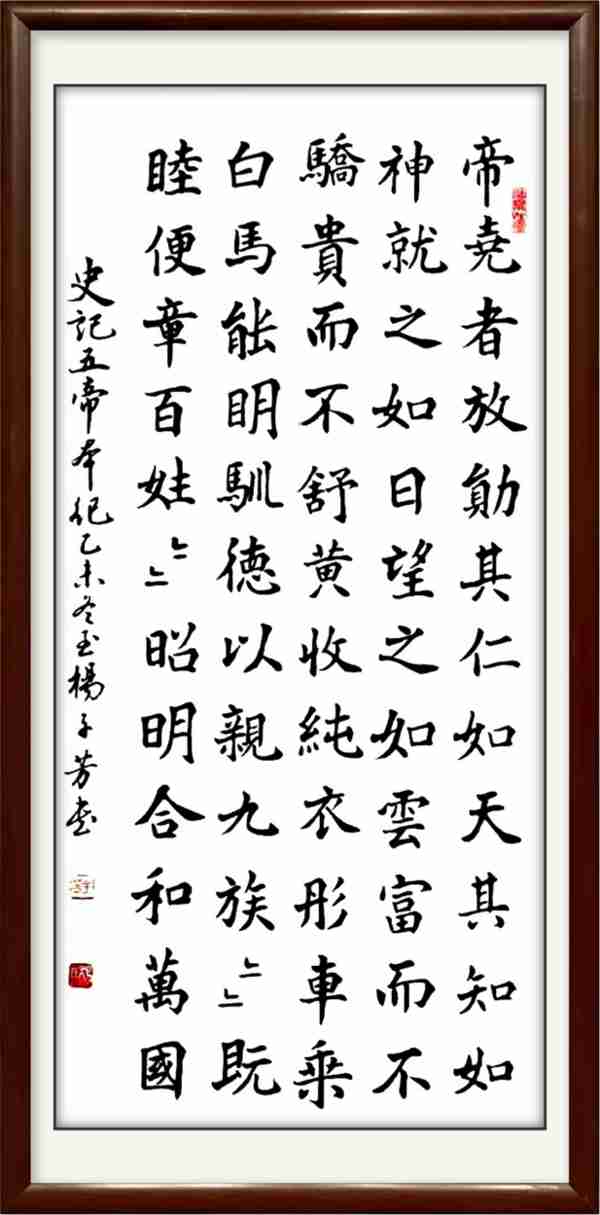 帝堯者放勛其仁如天其知如
神就之如日望之如雲富而不
驕貴而不舒黃收純衣彤車乘
白馬能明馴德以親九族〻既
睦便章百姓〻昭明合和萬國
史記五帝本紀乙未冬至楊子芳書